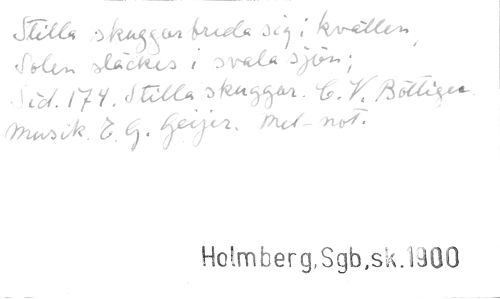 Stilla skuggor breda sig i kvällen,
Solen släckes i svala sjön;
Sid. 174. Stilla skuggor. C. V. Böttiger.
Musik. E. G. Geijer. Mel-not.
Holmberg,Sgb,sk.1900